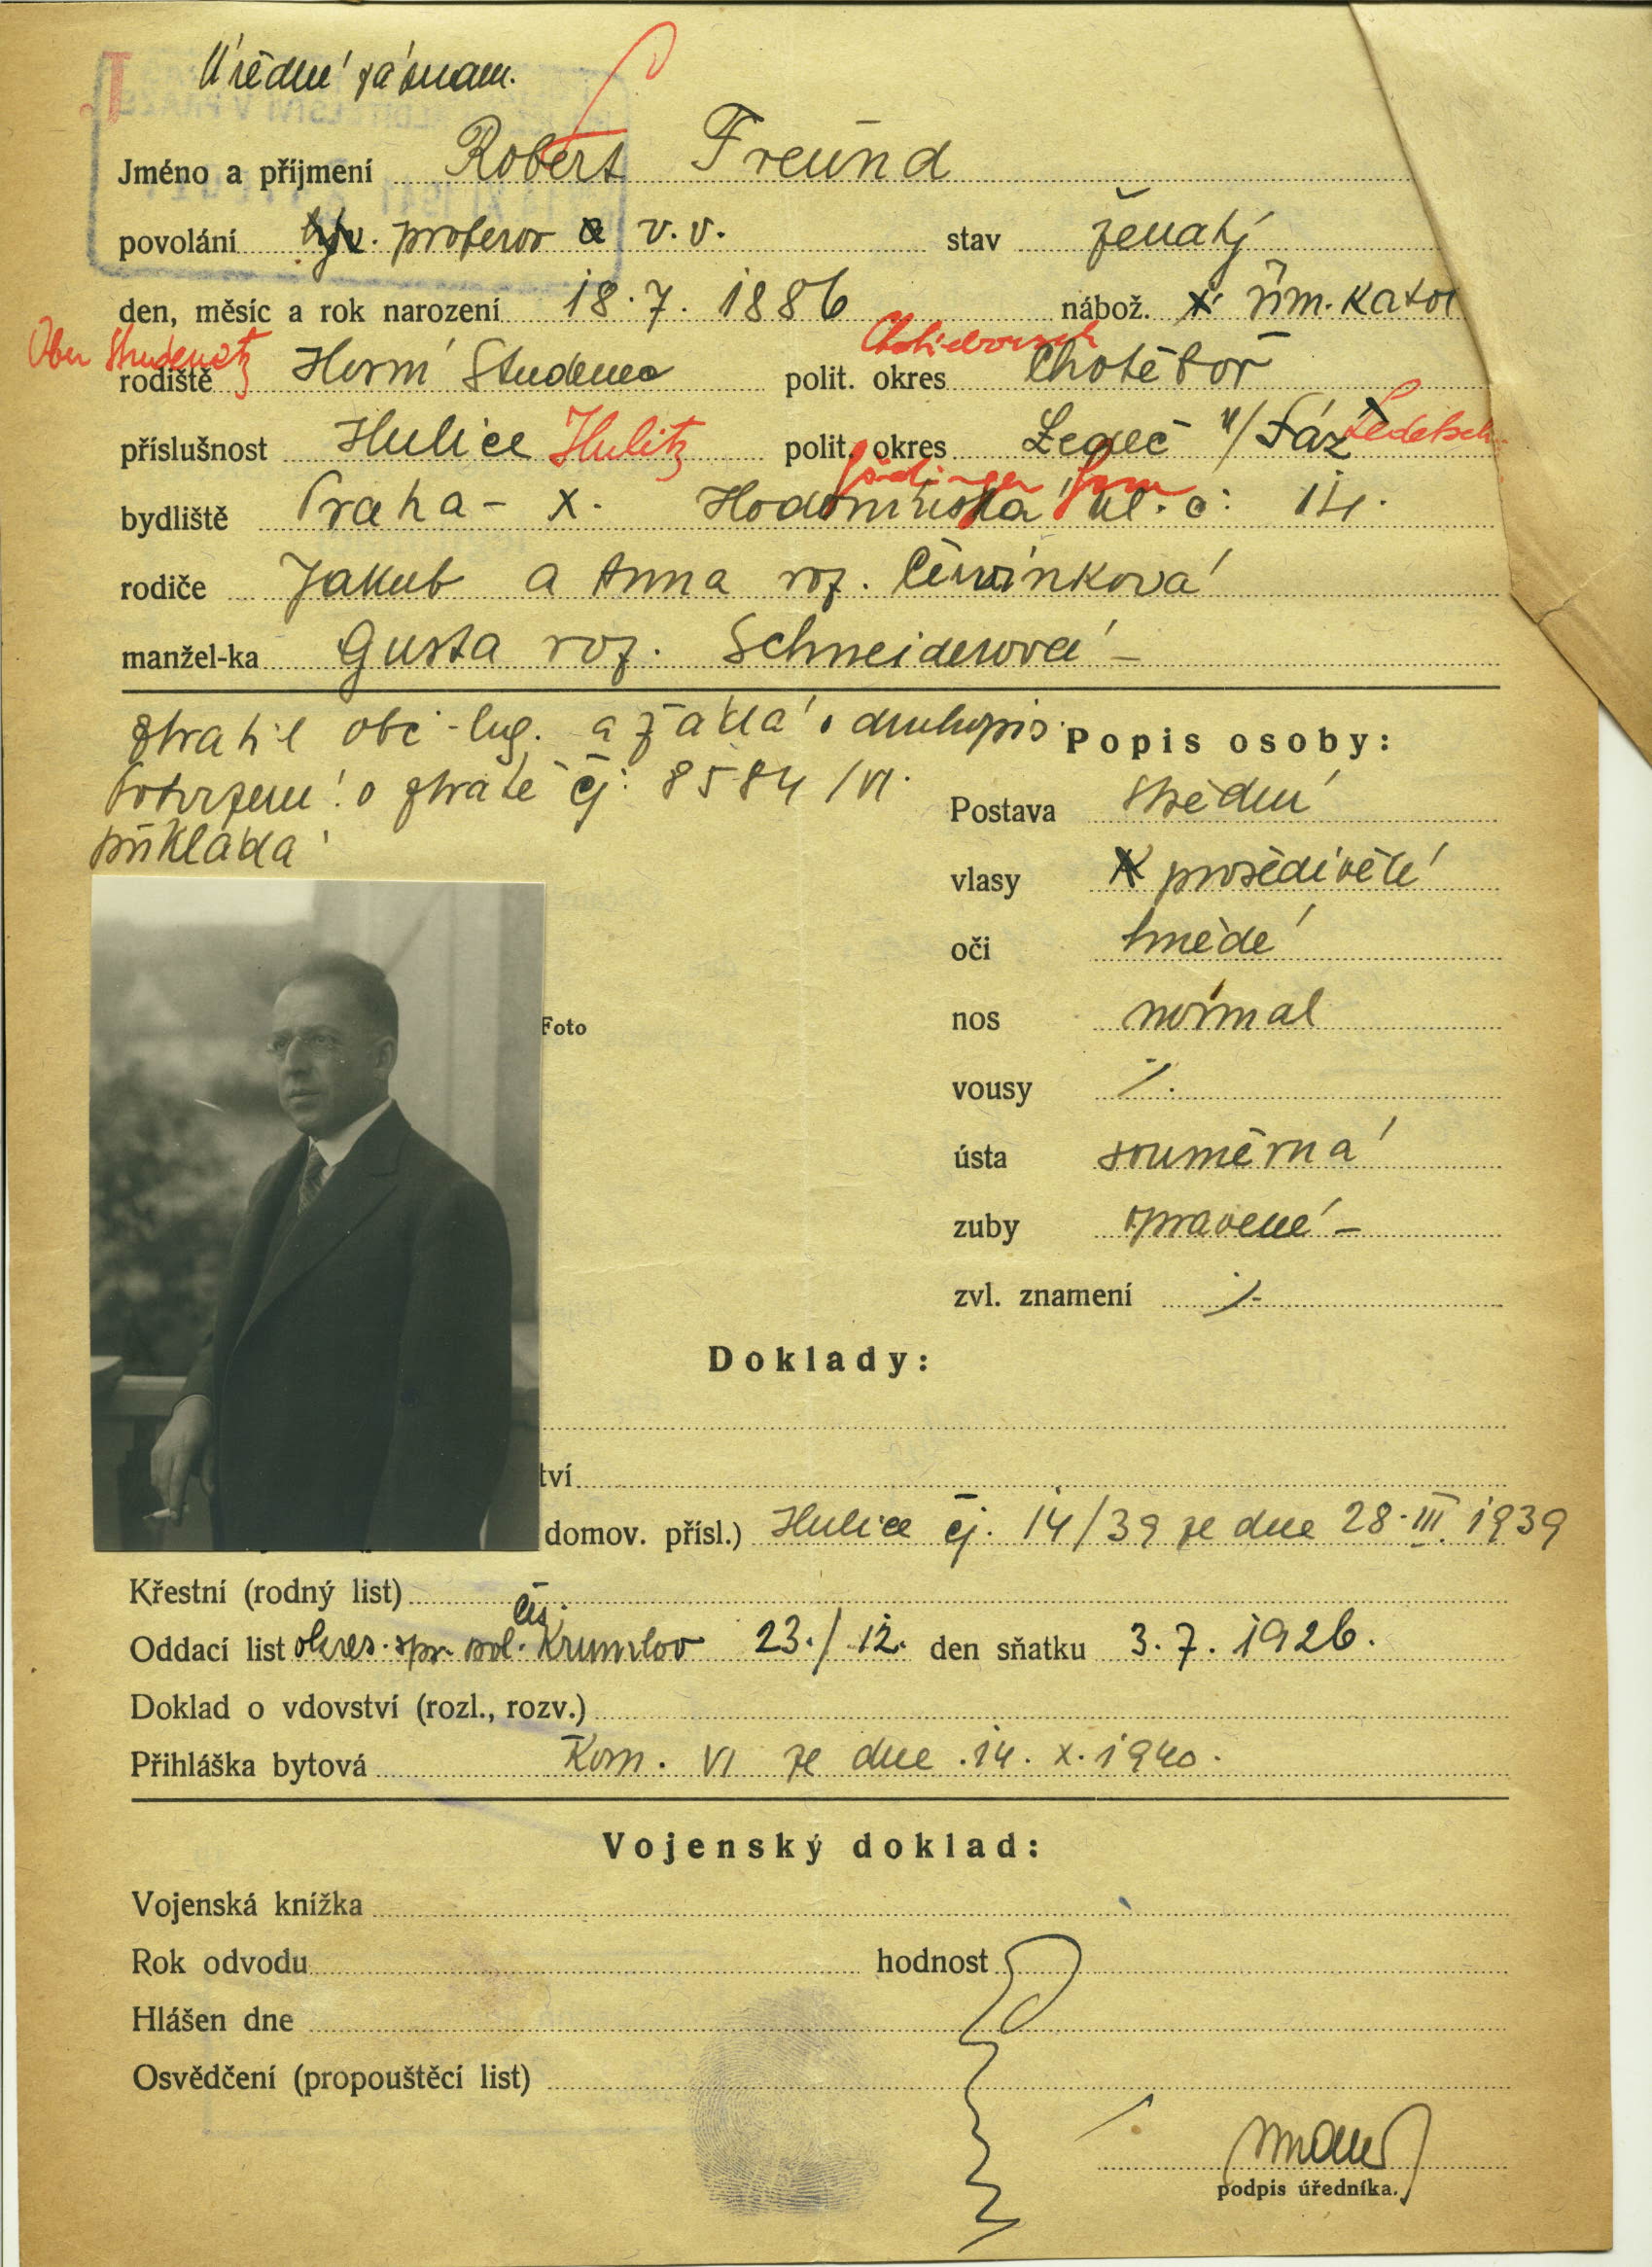 Úřední záznam.
Jméno a příjmení Robert Freund
povolání profesor v.v. stav ženatý
den, měsíc a rok narození 18.7. 1886 nábož. řím. katol
Ober Studenetz Chotieborsch
rodiště Horní Studenec polit. okres Chotěboř
příslušnost Hulice Hulitz polit. okres Ledeč n/Sáz Ledetsch
Gödinger
bydliště Praha - X. Hodonínská ul. č: 14.
rodiče Jakub a Anna roz. Červinková
manžel-ka Gusta roz. Schneiderová -
ztratil obč. leg. a žádá o druhopis.
Potvrzení o ztrátě čj. 8584/VI.
přikládá
Popis osoby:
Postava střední
vlasy prošedivělé
oči hnědé
Foto
nos normal
vousy ./.
ústa souměrná
zuby opravené -
zvl. znamení ./.
Doklady:
tví
domov. přísl.) Hulice čj. 14/39 ze dne 28. III. 1939
Křestní (rodný list)
Čes.
Oddací list okres. spr. pol. Krumlov 23./12. den sňatku 3.7. 1926.
Doklad o vdovství (rozl., rozv.)
Přihláška bytová Kom. VI ze dne 14. X. 1940.
Vojenský doklad:
Vojenská knížka
Rok odvodu hodnost
Hlášen dne
Osvědčení (propouštěcí list)
podpis úředníka.